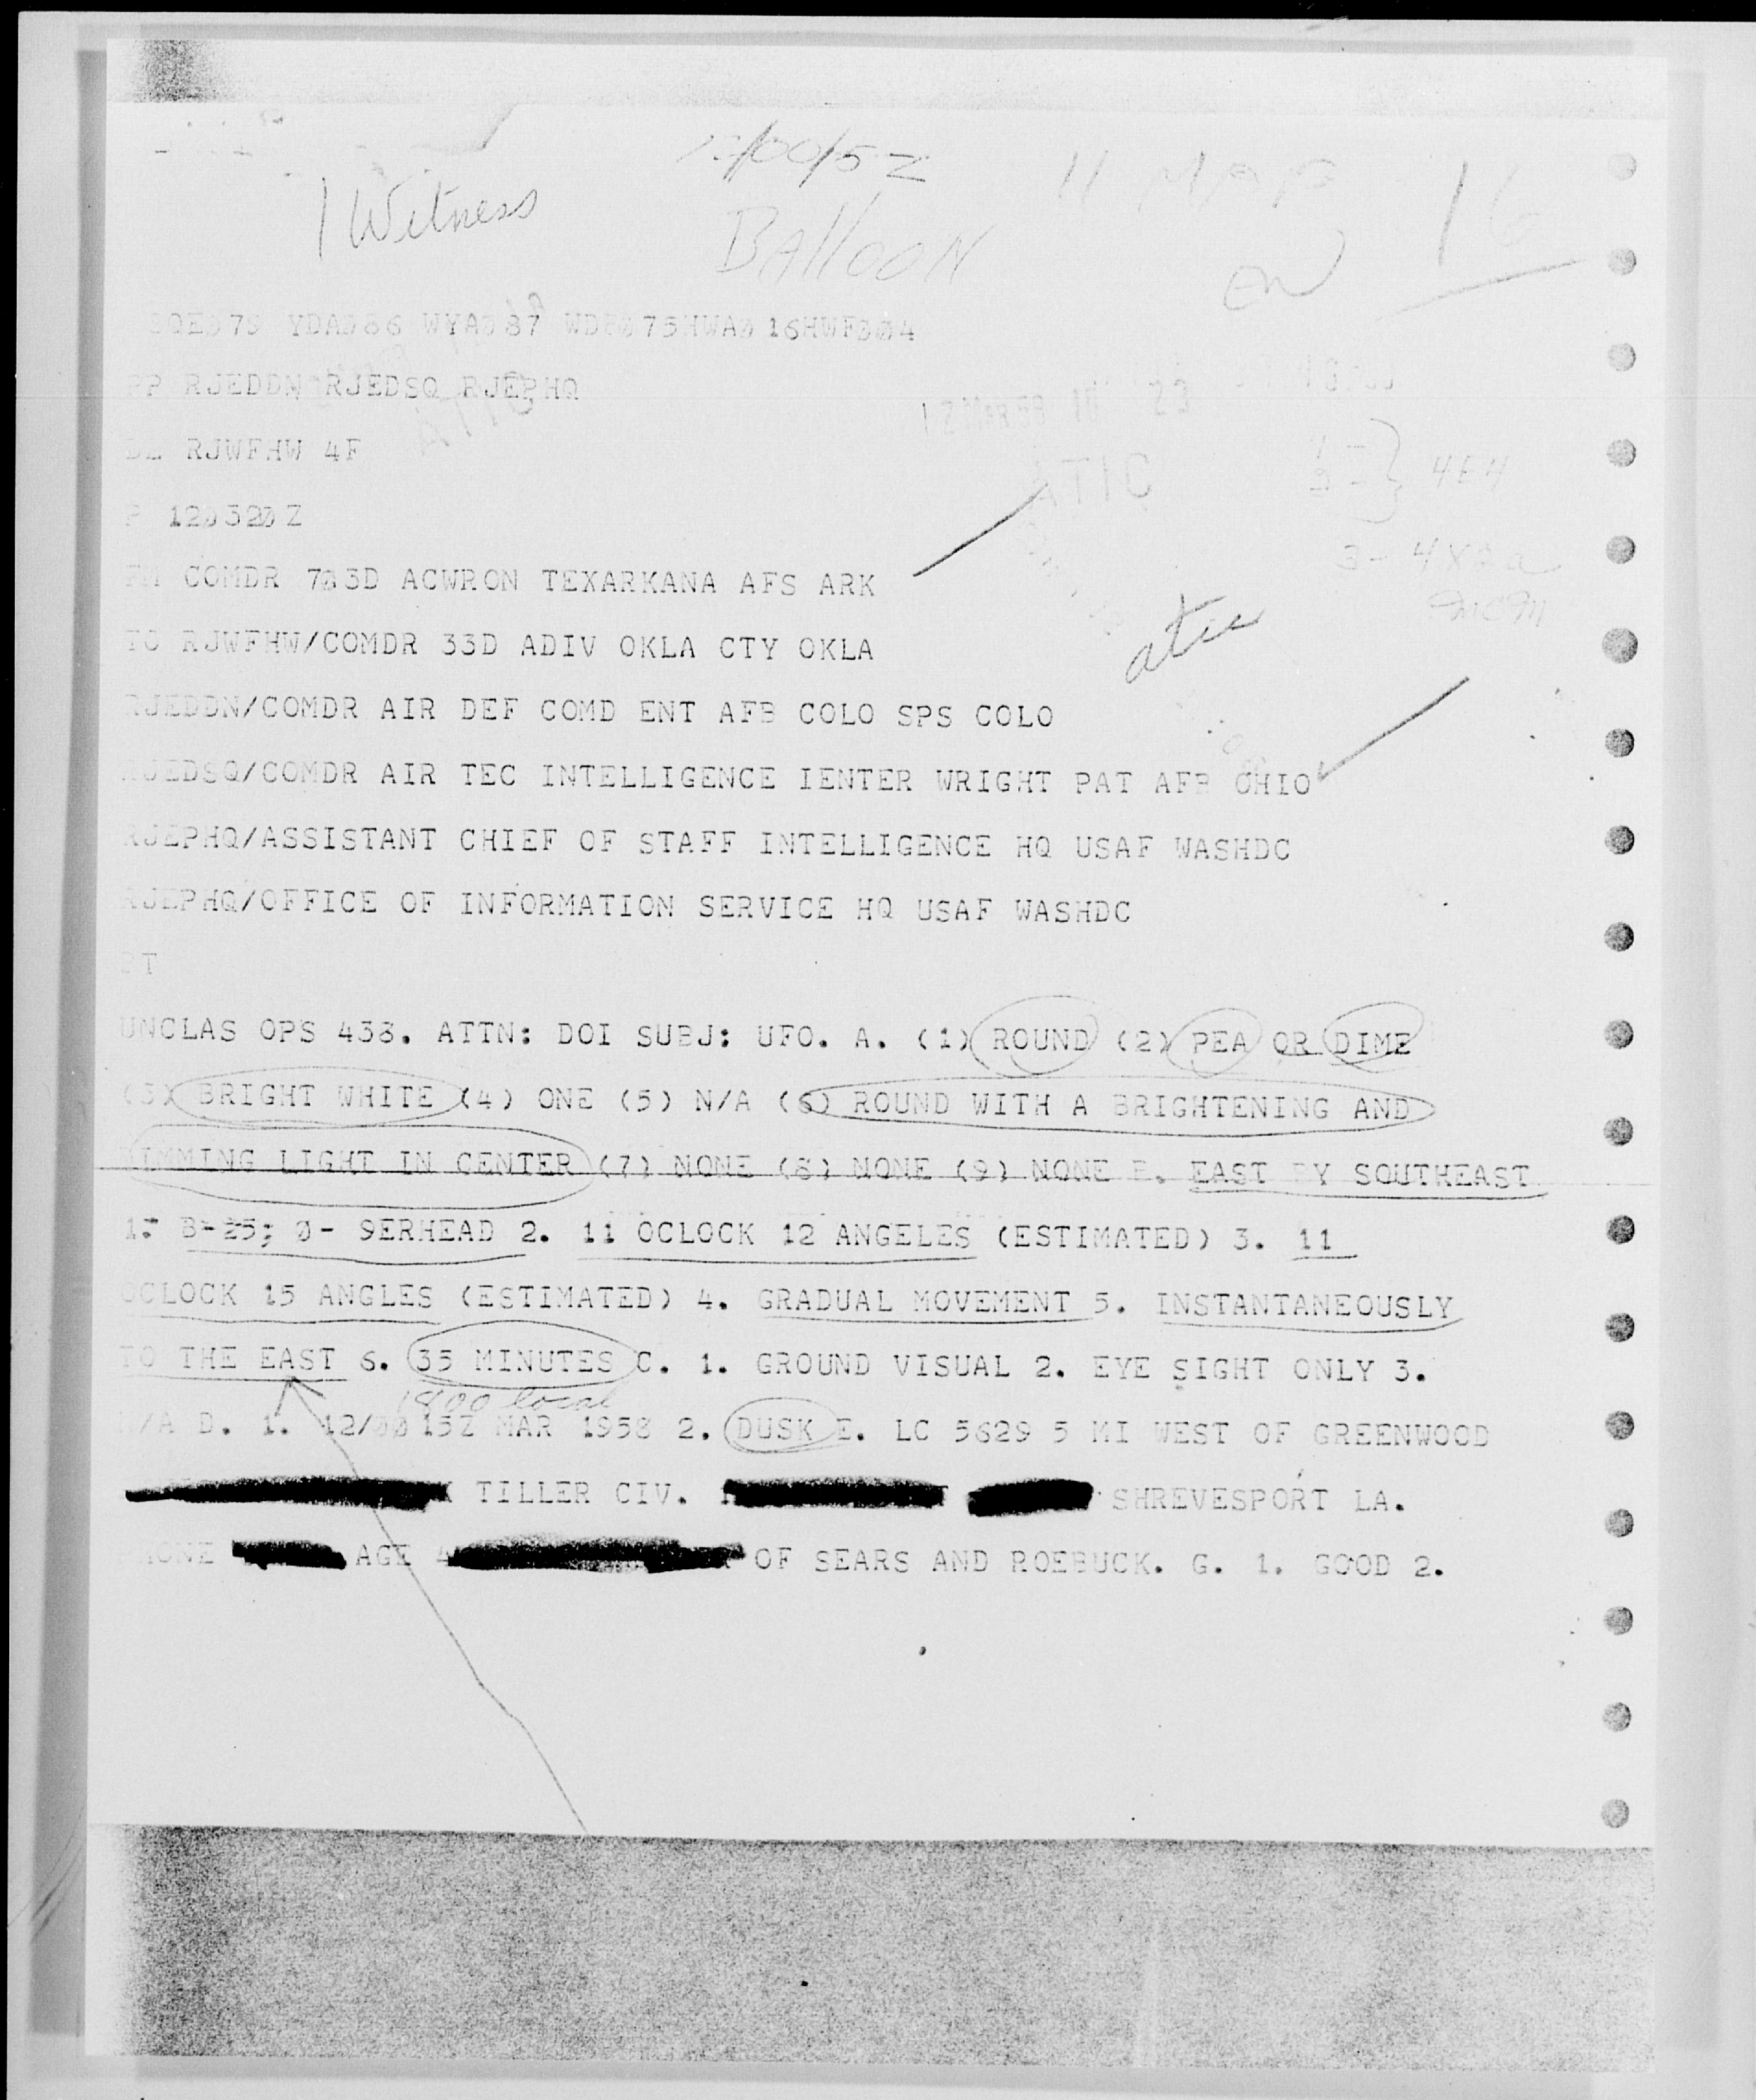 12/0015Z
11 MAR
16
1 Witness
BAllOON
RJEDDN RJEDSQ RJEPHQ
ATIC
RJWFHW 4F
4E4
3- 4X2a
COMDR 703D ACWRON TEXARKANA AFS ARK
TO RJWFHW/COMDR 33D ADIV OKLA CTY OKLA
atic
RJEDDN/COMDR AIR DEF COMD ENT AFB COLO SPS COLO
RJEDSQ/COMDR AIR TEC INTELLIGENCE IENTER WRIGHT PAT AFB OHIO
RJEPHQ/ASSISTANT CHIEF OF STAFF INTELLIGENCE HQ USAF WASHDC
RJEPHQ/OFFICE OF INFORMATION SERVICE HQ USAF WASHDC
BT
UNCLAS OPS 438. ATTN: DOI SUBJ: UFO. A. (1) ROUND (2) PEA OR DIME
(3) BRIGHT WHITE (4) ONE (5) N/A (6) ROUND WITH A BRIGHTENING AND
DIMMING LIGHT IN CENTER (7) NONE (8) NONE (9) NONE B. EAST BY SOUTHEAST
1. B-25; 0- 9ERHEAD 2. 11 OCLOCK 12 ANGELES (ESTIMATED) 3. 11
OCLOCK 15 ANGLES (ESTIMATED) 4. GRADUAL MOVEMENT 5. INSTANTANEOUSLY
TO THE EAST 6. 35 MINUTES C. 1. GROUND VISUAL 2. EYE SIGHT ONLY 3.
1800 local
N/A D. 1. 12/0015Z MAR 1958 2. DUSK E. LC 5629 5 MI WEST OF GREENWOOD
TILLER CIV. SHREVESPORT LA.
PHONE AGE 4 OF SEARS AND ROEBUCK. G. 1. GOOD 2.